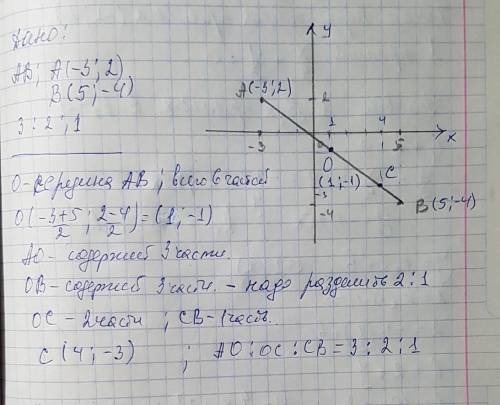 Дано:
АВ; А(-3; 2)
В(5; -4)
3:2:1
О-середина АВ; всего 6 частей
О(-3+5/2; 2-4/2)=(1; -1)
АО- содержит 3 части.
ОВ- содержит 3 части. - надо разделить 2:1
ОС - 2 части ; СВ - 1 часть.
С (4; -3) ; АО:ОС:СВ = 3:2:1
у
А(-3; 2)
2
-3
0
1
4
5
х
О
(1; -1)
С
-3
-4
В(5; -4)